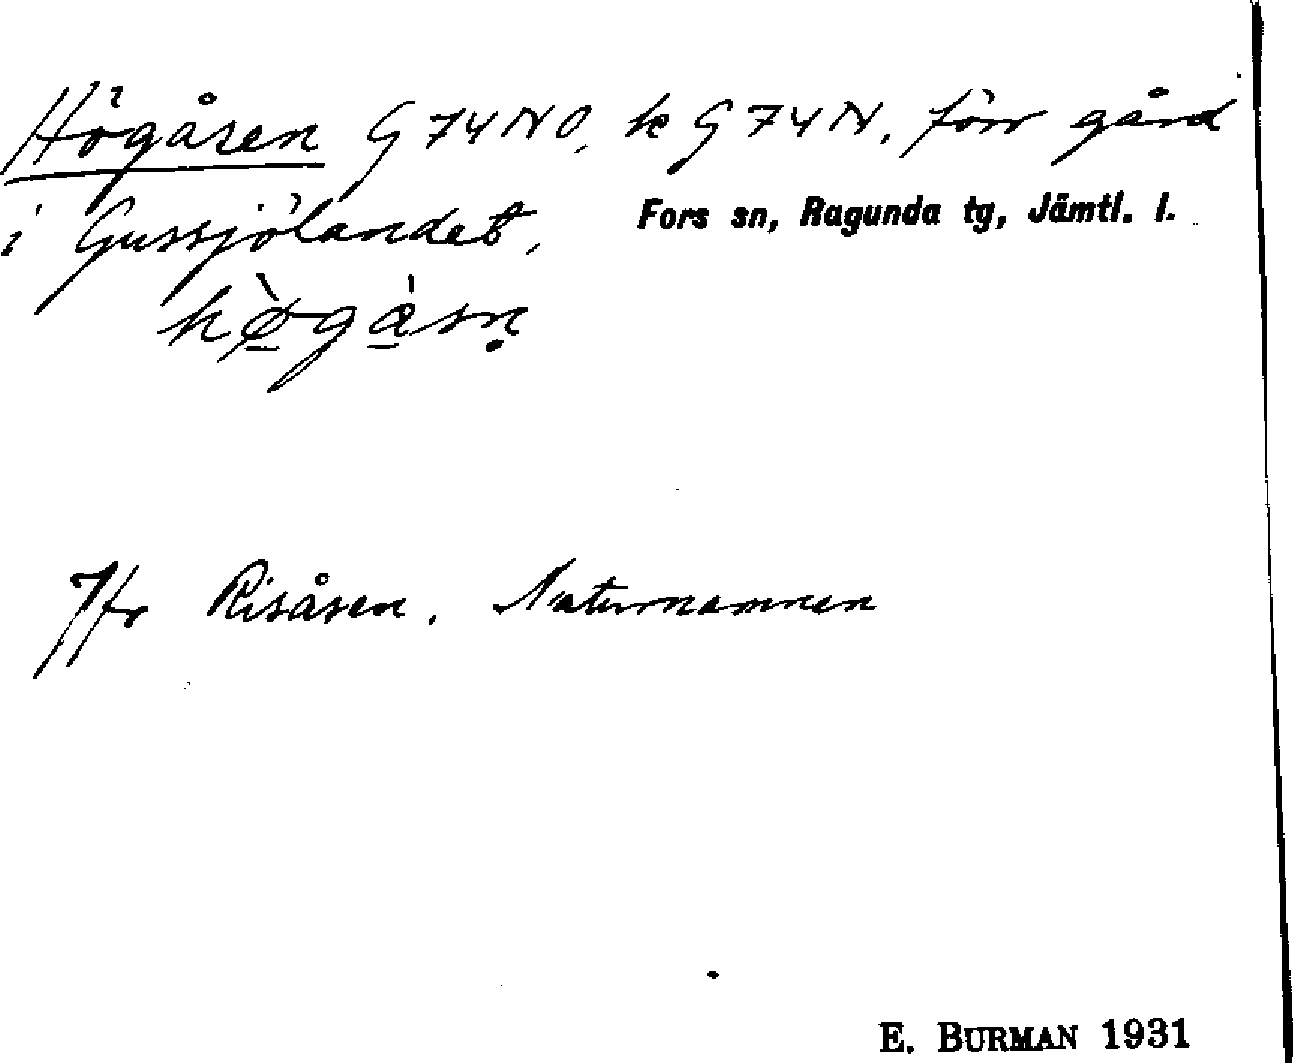 Högåsen G 74 NO, k G 74 N, förr gård
i Gussjölandet, Fors sn, Ragunda tg, Jämtl. l.
hø̀gàsn̥
Jfr Risåsen, Naturnamnen
E. BURMAN 1931